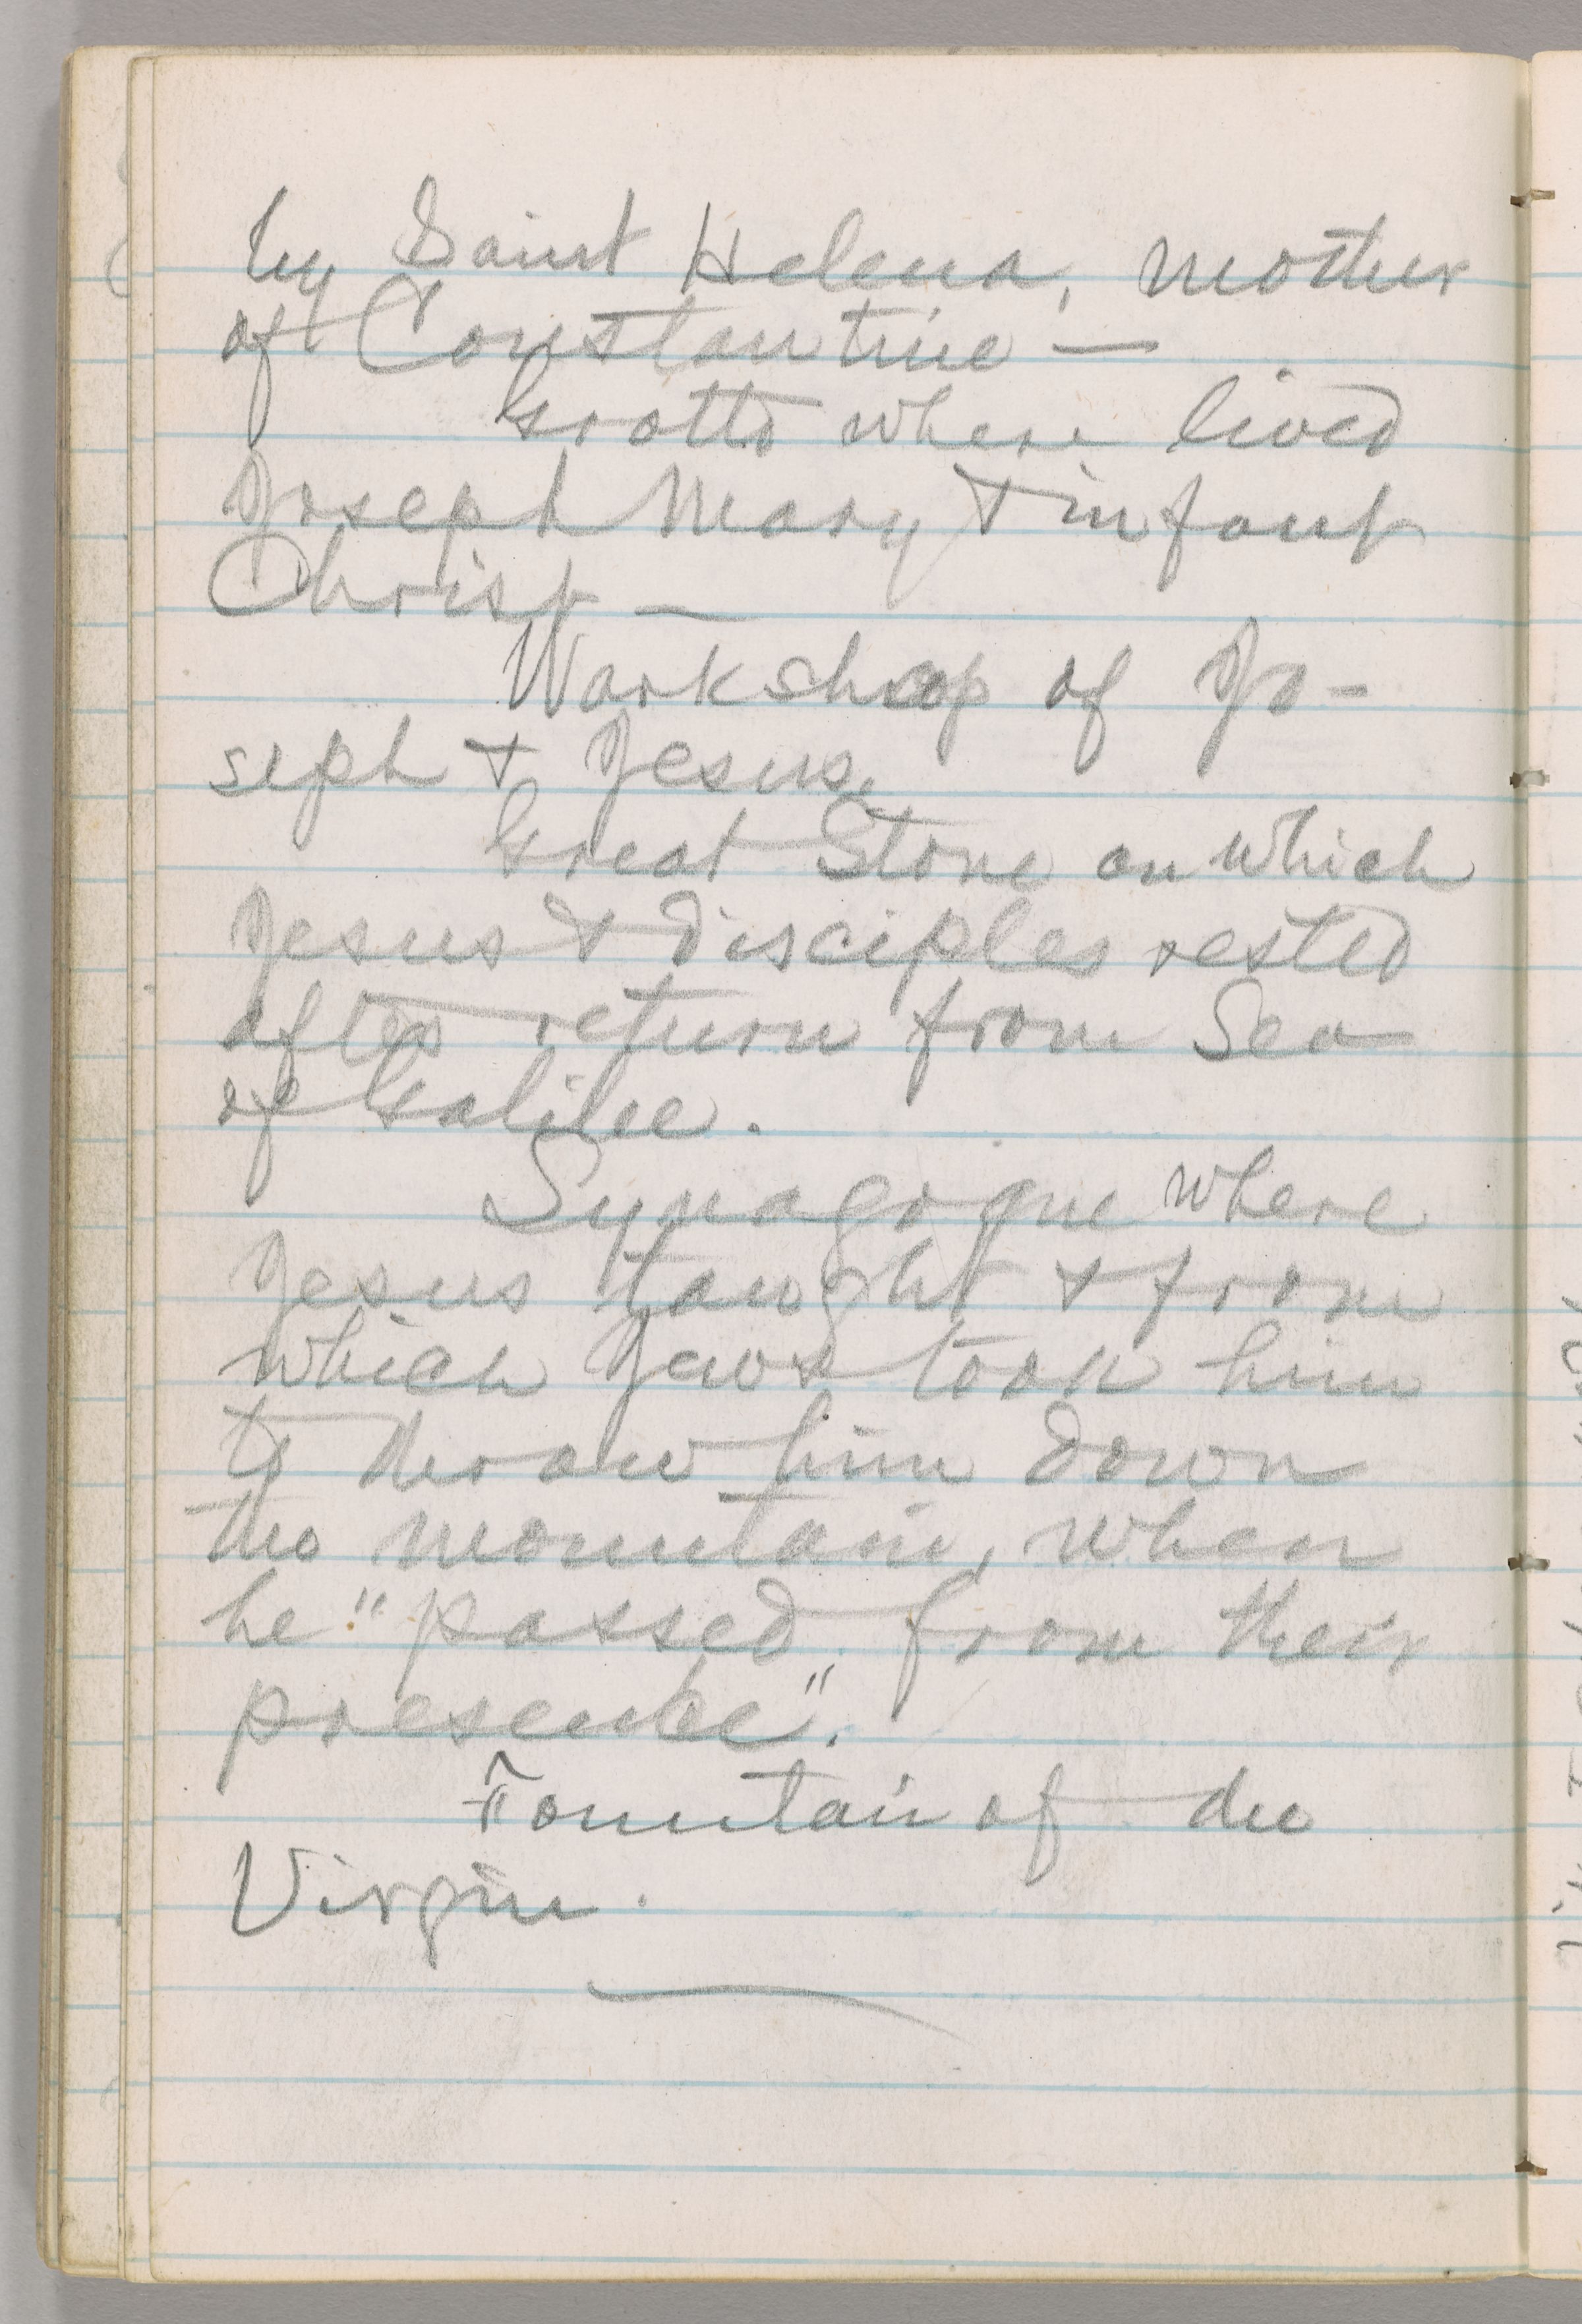 by Saint Helena, mother
of Constantine —
Grotto where lived
Joseph Mary & infant
Christ —
Workshop of Jo-
seph & Jesus.
Great Stone on which
Jesus & disciples rested
after return from Sea
of Galilee.
Synagogue where
Jesus taught & from
which Jews took him
to throw him down
the mountain, when
he "passed from their
presence".
Fountain of the
Virgin.